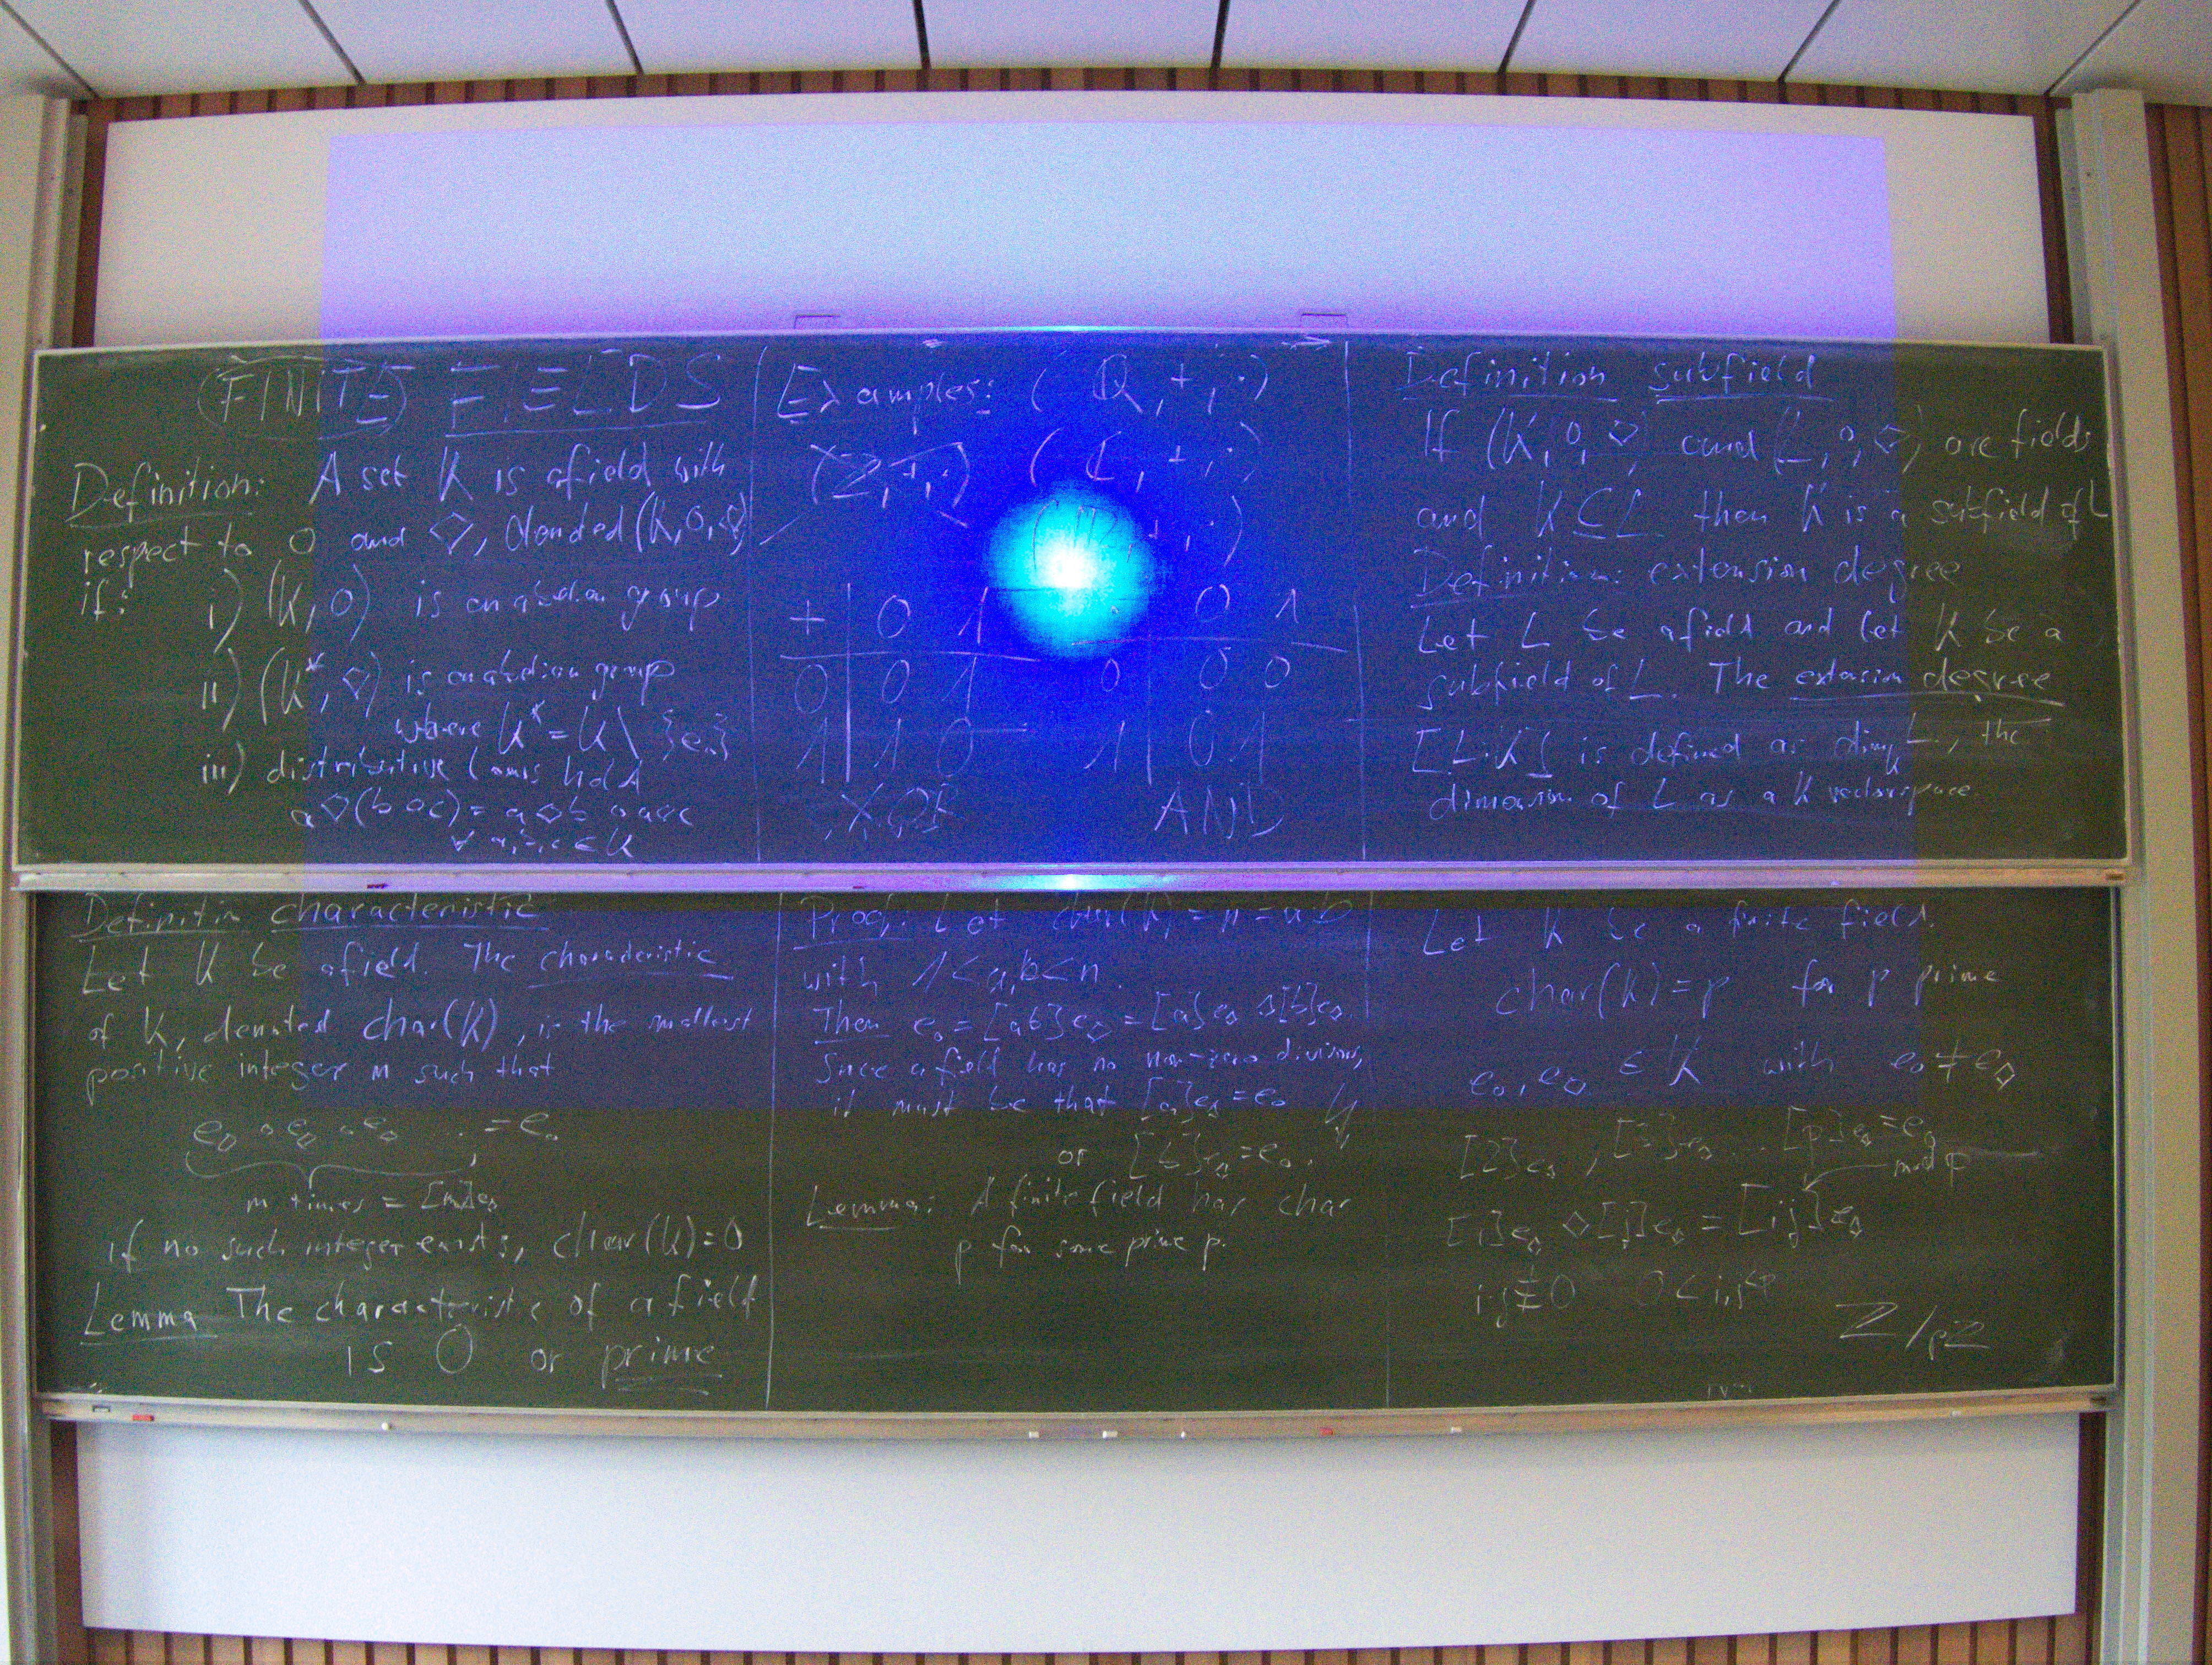 (FINITE) FIELDS
Definition: A set K is a field with
respect to ∘ and ◇, denoted (K,∘,◇)
if: i) (K,∘) is an abelian group
ii) (K*,◇) is an abelian group
where K* = K \ {e∘}
iii) distributive laws hold
a◇(b∘c) = a◇b ∘ a◇c
∀ a,b,c ∈ K
Examples: (Q,+,·)
(Z,+,·) (C,+,·)
(R,+,·)
+ | 0 1 · | 0 1
0 | 0 1 0 | 0 0
1 | 1 0 1 | 0 1
XOR AND
Definition subfield
If (K,∘,◇) and (L,∘,◇) are fields
and K⊆L then K is a subfield of L
Definition: extension degree
Let L be a field and let K be a
subfield of L. The extension degree
[L:K] is defined as dim_K L, the
dimension of L as a K vectorspace
Definition characteristic
Let K be a field. The characteristic
of K, denoted char(K), is the smallest
positive integer m such that
e◇ ∘ e◇ ∘ e◇ ... = e∘
m times = [m]e◇
if no such integer exists, char(K)=0
Lemma The characteristic of a field
is 0 or prime
Proof: Let char(K) = n = a·b
with 1<a,b<n.
Then e∘ = [ab]e◇ = [a]e◇ ◇ [b]e◇.
Since a field has no non-zero divisors,
it must be that [a]e◇ = e∘
or [b]e◇ = e∘.
Lemma: A finite field has char
p for some prime p.
Let K be a finite field.
char(K) = p for p prime
e∘, e◇ ∈ K with e∘ ≠ e◇
[2]e◇, [3]e◇ ... [p]e◇ = e∘
mod p
[i]e◇ ◇ [j]e◇ = [ij]e◇
i·j ≢ 0 0 < i,j < p
Z/pZ